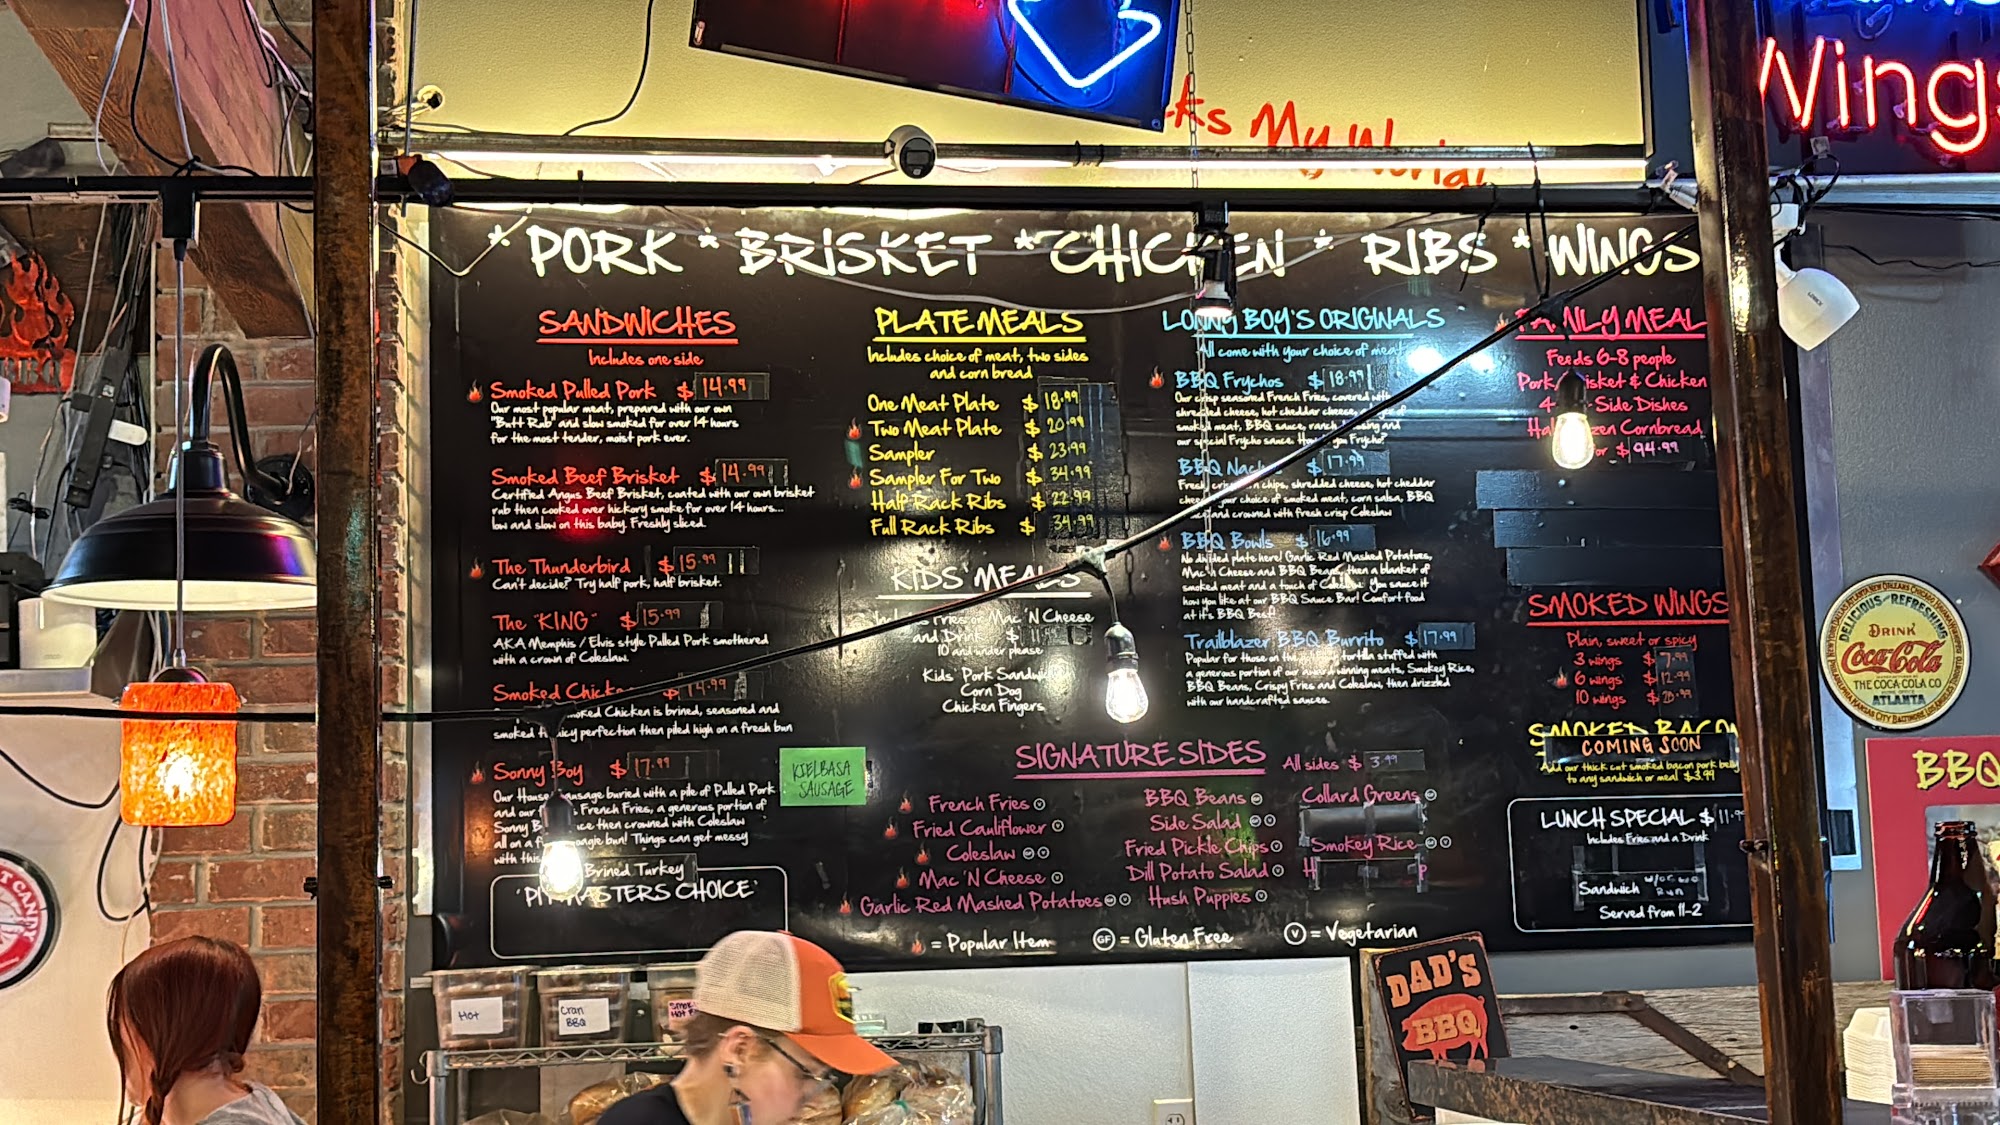 Wings
My World
* PORK * BRISKET * CHICKEN * RIBS * WINGS
SANDWICHES
Includes one side
Smoked Pulled Pork $ 14.99
Our most popular meat, prepared with our own
"Butt Rub" and slow smoked for over 14 hours
for the most tender, moist pork ever.
Smoked Beef Brisket $ 14.99
Certified Angus Beef Brisket, coated with our own brisket
rub then cooked over hickory smoke for over 14 hours...
low and slow on this baby. Freshly sliced.
The Thunderbird $ 15.99
Can't decide? Try half pork, half brisket.
The "KING" $ 15.99
AKA Memphis / Elvis style Pulled Pork smothered
with a crown of Coleslaw.
Smoked Chicken $ 14.99
Smoked Chicken is brined, seasoned and
smoked to juicy perfection then piled high on a fresh bun
Sonny Boy $ 17.99
Our House Sausage buried with a pile of Pulled Pork
and our French Fries, a generous portion of
Sonny then crowned with Coleslaw
all on a hoagie bun! Things can get messy
with this
Brined Turkey
'PITMASTERS CHOICE'
PLATE MEALS
Includes choice of meat, two sides
and corn bread
One Meat Plate $ 18.99
Two Meat Plate $ 20.99
Sampler $ 23.99
Sampler For Two $ 34.99
Half Rack Ribs $ 22.99
Full Rack Ribs $ 34.99
KIDS' MEALS
Includes Fries or Mac 'N Cheese
and Drink $ 11
10 and under please
Kids' Pork Sandwich
Corn Dog
Chicken Fingers
KIELBASA
SAUSAGE
LONNY BOY'S ORIGINALS
All come with your choice of meat
BBQ Frychos $ 18.99
Our crisp seasoned French Fries, covered with
shredded cheese, hot cheddar cheese, of
smoked meat, BBQ sauce, ranch dressing and
our special Frycho sauce. How you Frycho?
BBQ Nachos $ 17.99
Fresh crisp corn chips, shredded cheese, hot cheddar
cheese, your choice of smoked meat, corn salsa, BBQ
and crowned with fresh crisp Coleslaw
BBQ Bowls $ 16.99
No divided plate here! Garlic Red Mashed Potatoes,
Mac'n Cheese and BBQ Beans, then a blanket of
smoked meat and a touch of Coleslaw. You sauce it
how you like at our BBQ Sauce Bar! Comfort food
at it's BBQ Best!
Trailblazer BBQ Burrito $ 17.99
Popular for those on the tortilla stuffed with
a generous portion of our award winning meats, Smokey Rice,
BBQ Beans, Crispy Fries and Coleslaw, then drizzled
with our handcrafted sauces.
FAMILY MEAL
Feeds 6-8 people
Pork, Brisket & Chicken
4 Side Dishes
Half Dozen Cornbread
for $ 94.99
SMOKED WINGS
Plain, sweet or spicy
3 wings $ 7.99
6 wings $ 12.99
10 wings $ 20.99
SMOKED BACON
COMING SOON
Add our thick cut smoked bacon pork belly
to any sandwich or meal $3.99
LUNCH SPECIAL $ 11.99
Includes Fries and a Drink
Sandwich w/or w/o Bun
Served from 11-2
SIGNATURE SIDES
All sides $ 3.99
French Fries V
Fried Cauliflower V
Coleslaw GF V
Mac 'N Cheese V
Garlic Red Mashed Potatoes GF V
BBQ Beans GF
Side Salad GF V
Fried Pickle Chips V
Dill Potato Salad V
Hush Puppies V
Collard Greens GF
Smokey Rice GF V
= Popular Item
GF = Gluten Free
V = Vegetarian
DELICIOUS AND REFRESHING
DRINK
Coca-Cola
THE COCA-COLA CO
ATLANTA
BBQ
Hot
Cran
BBQ
DAD'S
BBQ
BBQ